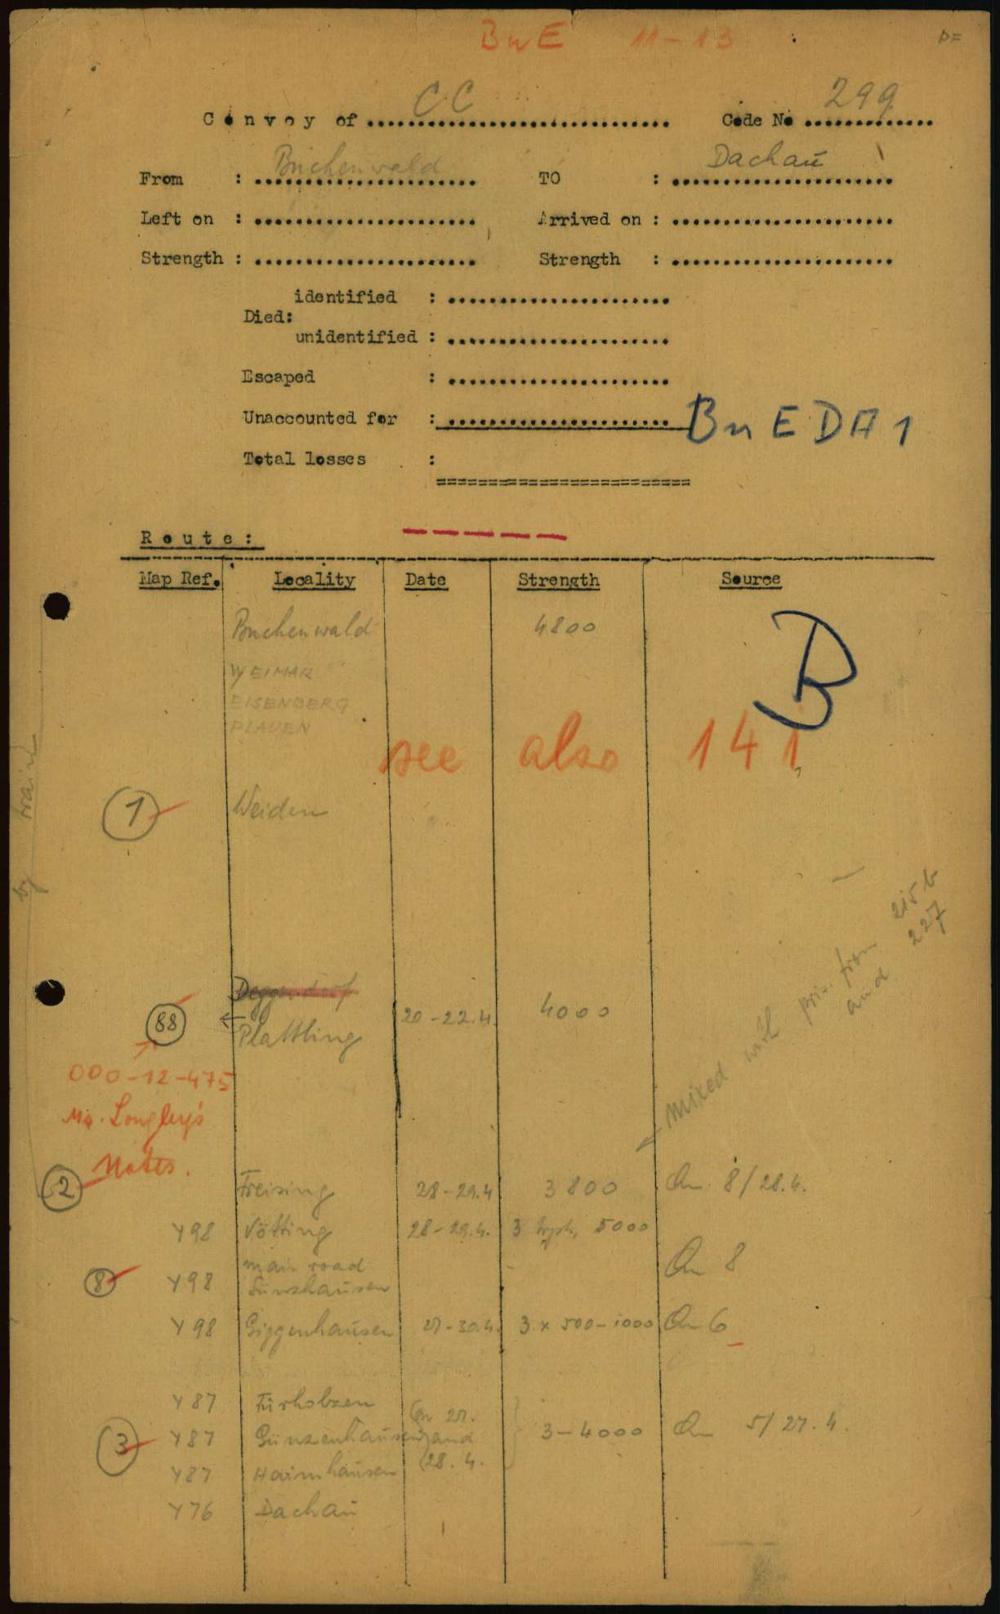 BuE 11-13
D=
Convoy of CC Code No 299
From : Buchenwald TO : Dachau
Left on : Arrived on :
Strength : Strength :
identified :
Died:
unidentified :
Escaped :
Unaccounted for : Bu E DA 1
Total losses :
Route:
Map Ref. Locality Date Strength Source
Buchenwald 4800
B
WEIMAR
EISENBERG
PLAUEN
see also 141
by train
1 Weiden
Deggendorf
88 ← Plattling 20-22.4. 4000
mixed with pris. from 215b and 227
000-12-475
Mr. Longley's
Notes.
2 Freising 28-29.4 3800 Qu. 8/28.4.
Y98 Vötting 28-29.4. 5000
main road
Qu 8
8 Y98 Sünzhausen
Y98 Giggenhausen 27-30.4. 3 x 500-1000 Qu 6
Y87 Fürholzen
3 Y87 Günzenhausen and 3-4000 Qu 5/27.4.
Y87 Haimhausen 28.4.
Y76 Dachau